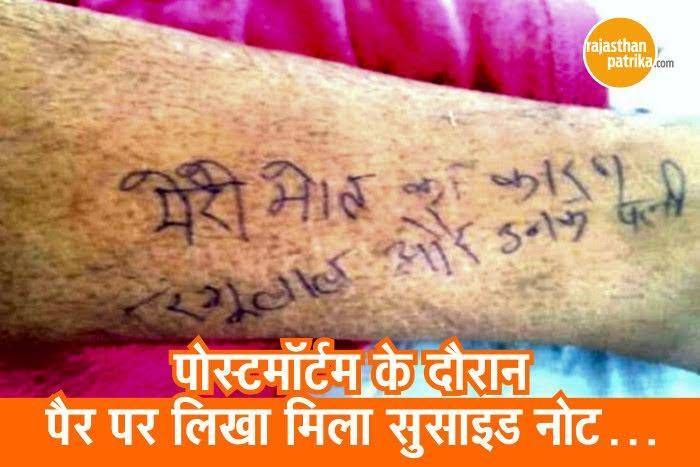 rajasthan
patrika.com
मेरी मौत का कारण
और उनके पत्नी
पोस्टमॉर्टम के दौरान
पैर पर लिखा मिला सुसाइड नोट...